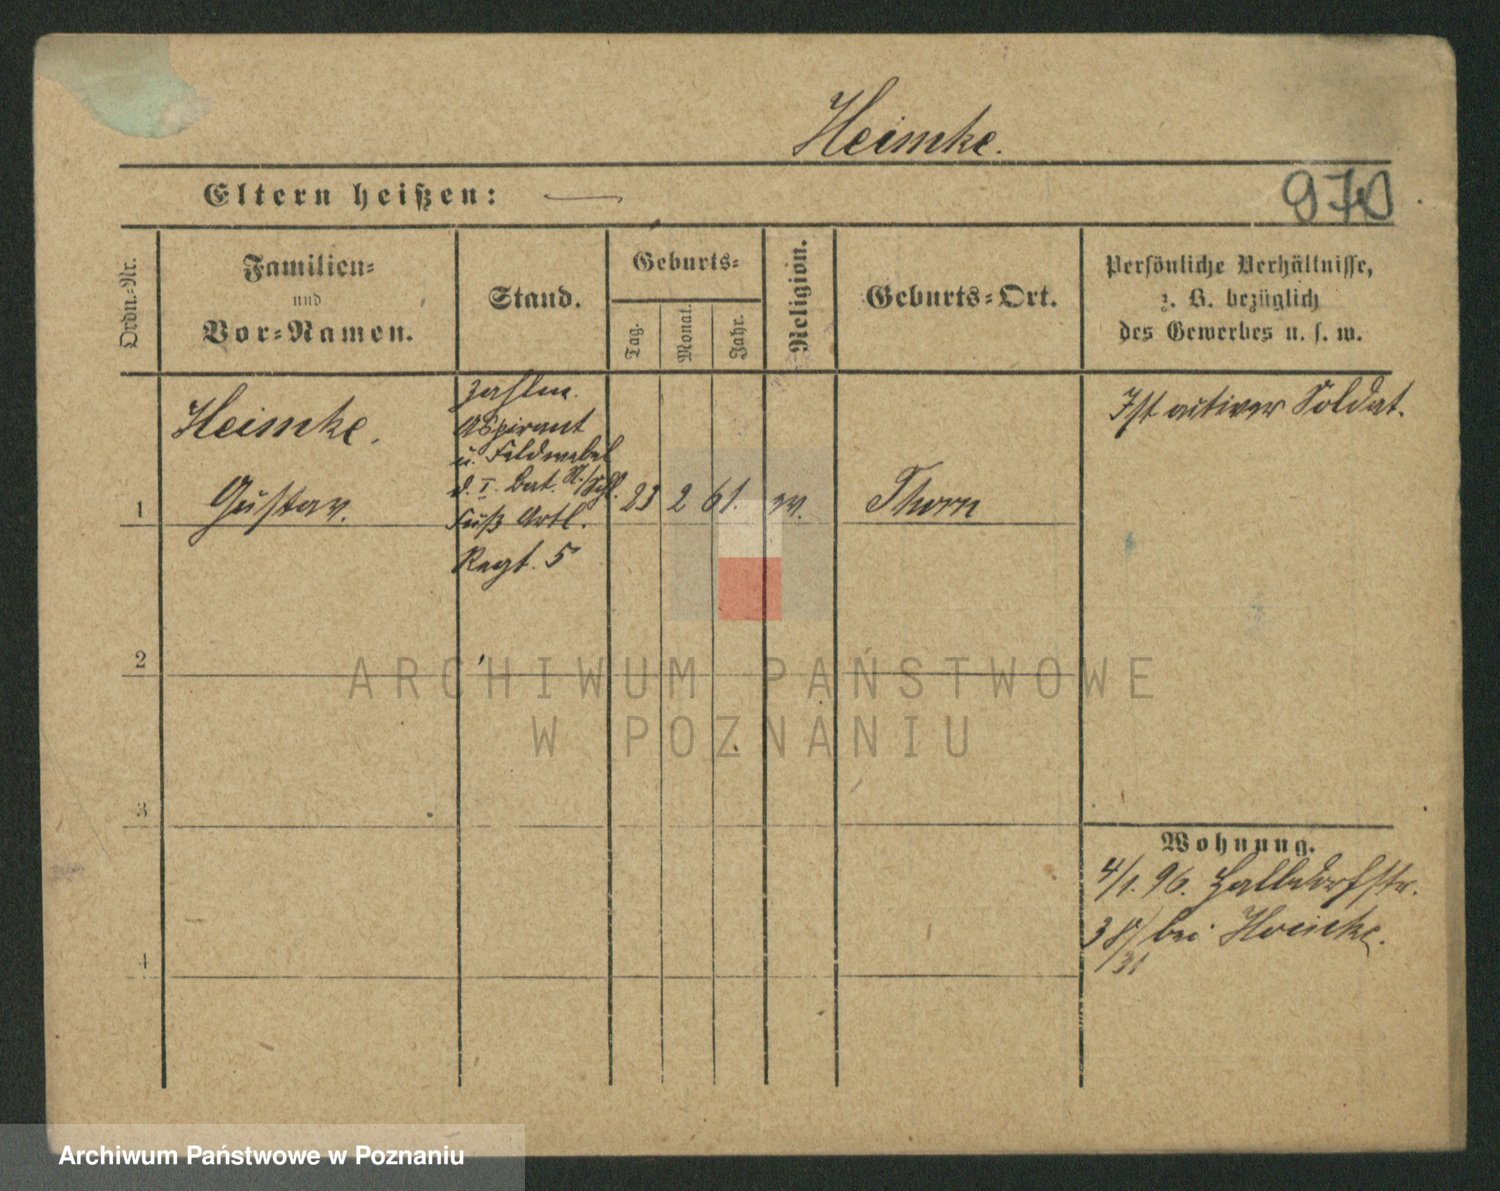 Heimke.
Eltern heißen: —
970
Ordn.-Nr.
Familien-
und
Vor-Namen.
Stand.
Geburts-
Tag.
Monat.
Jahr.
Religion.
Geburts-Ort.
Persönliche Verhältnisse,
z. B. bezüglich
des Gewerbes u. s. w.
1
Heimke,
Gustav.
Zahlm.
Aspirant
u. Feldwebel
d. I. Bat. N./Schl.
Fuß Artl.
Regt. 5
23
2
61.
ev.
Thorn
Ist activer Soldat.
2
3
4
Wohnung.
4/1. 96. Halbdorfstr.
bei Heimke.
ARCHIWUM PAŃSTWOWE
W POZNANIU
Archiwum Państwowe w Poznaniu